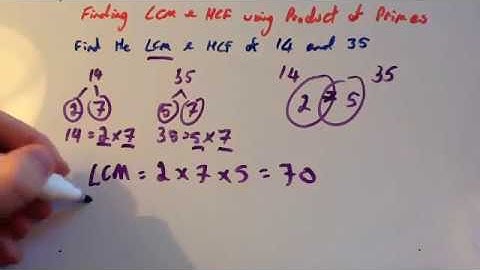 Finding LCM & HCF using Product of Primes
Find the LCM & HCF of 14 and 35
14 35 14 35
2 7 5 7 2 7 5
14 = 2 x 7 35 = 5 x 7
LCM = 2 x 7 x 5 = 70